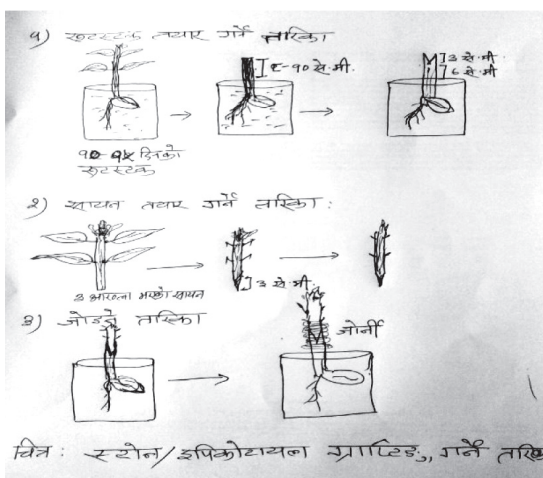 १) रुटस्टक तयार गर्ने तरिका
८-१० से.मी.
3 से.मी
6 से.मी
१०-१५ दिनको
रुटस्टक
२) सायन तयार गर्ने तरिका :
3 से.मी
3 आँख्ला भएको सायन
३) जोड्ने तरिका
जोर्नी
चित्र : स्टोन/इपिकोटायल ग्राफ्टिङ्ग, गर्ने तरिका